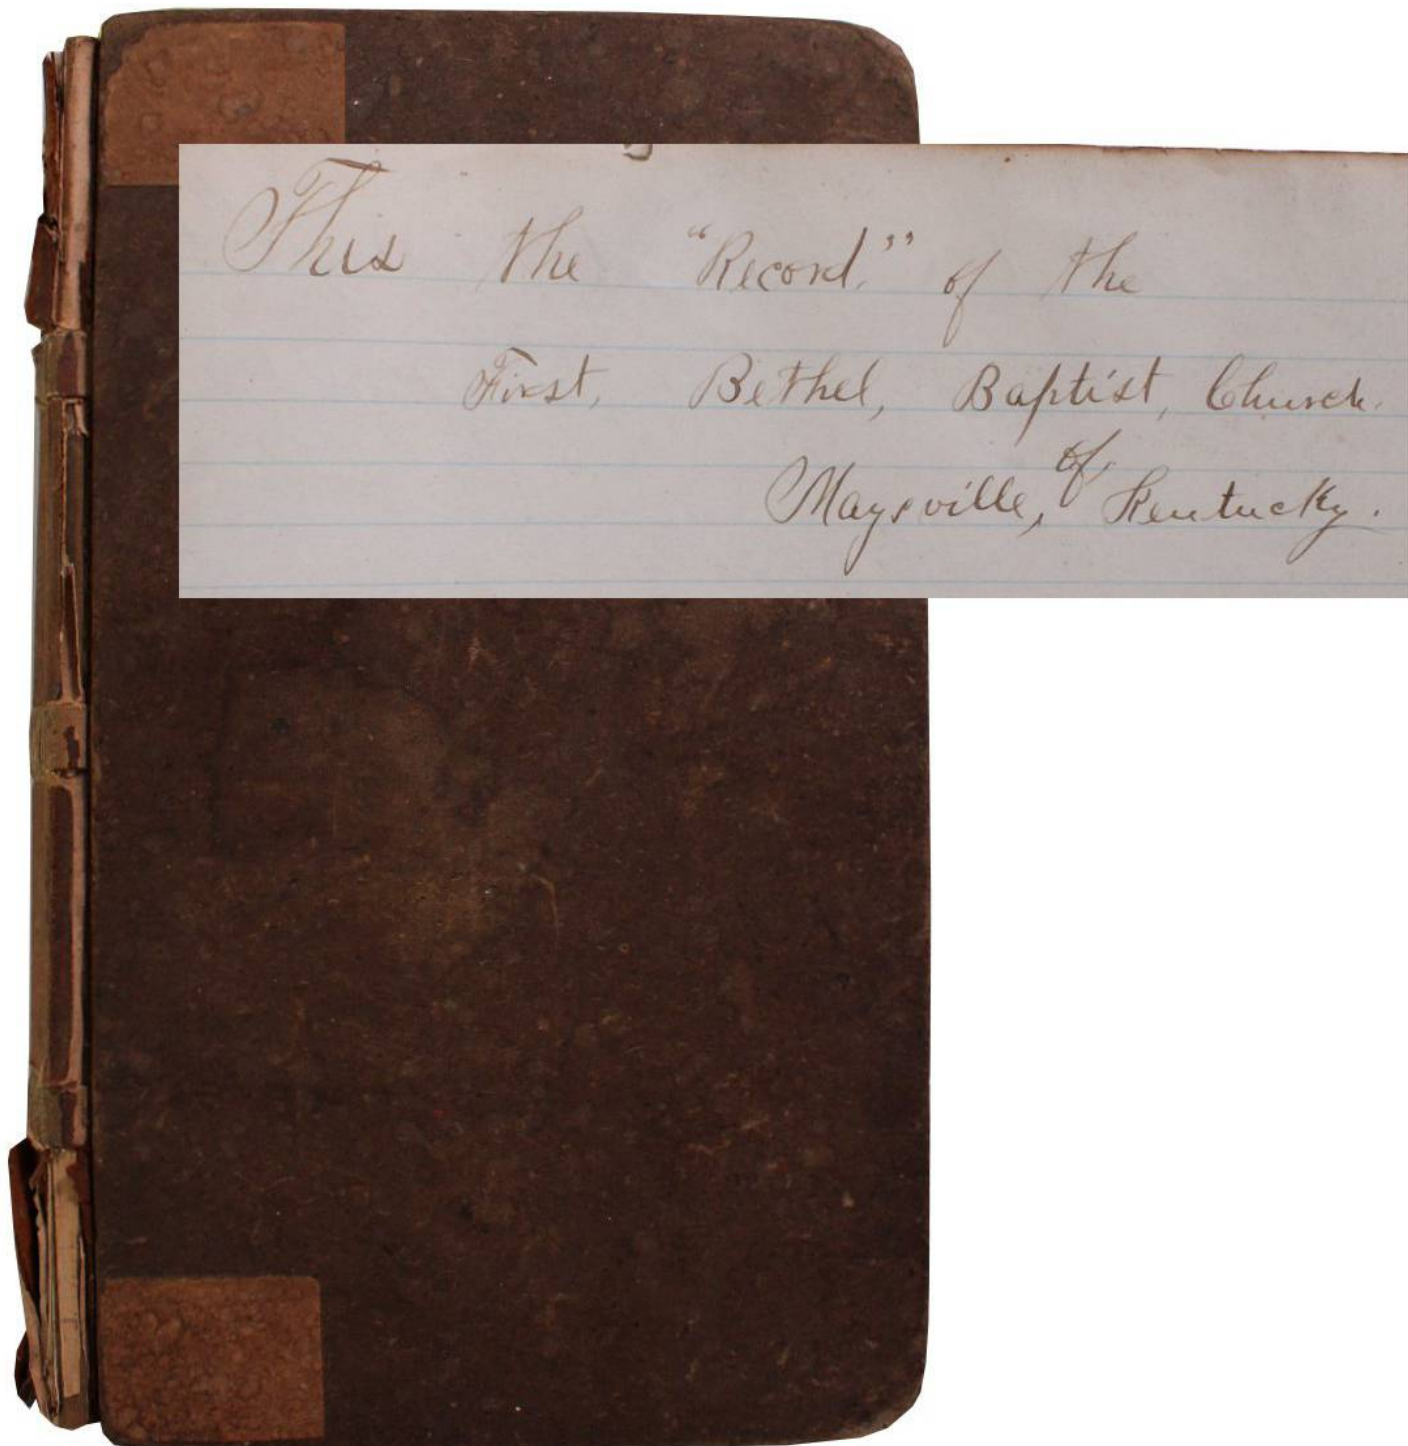 This the "Record." of the
First, Bethel, Baptist, Church.
Maysville, of, Kentucky.